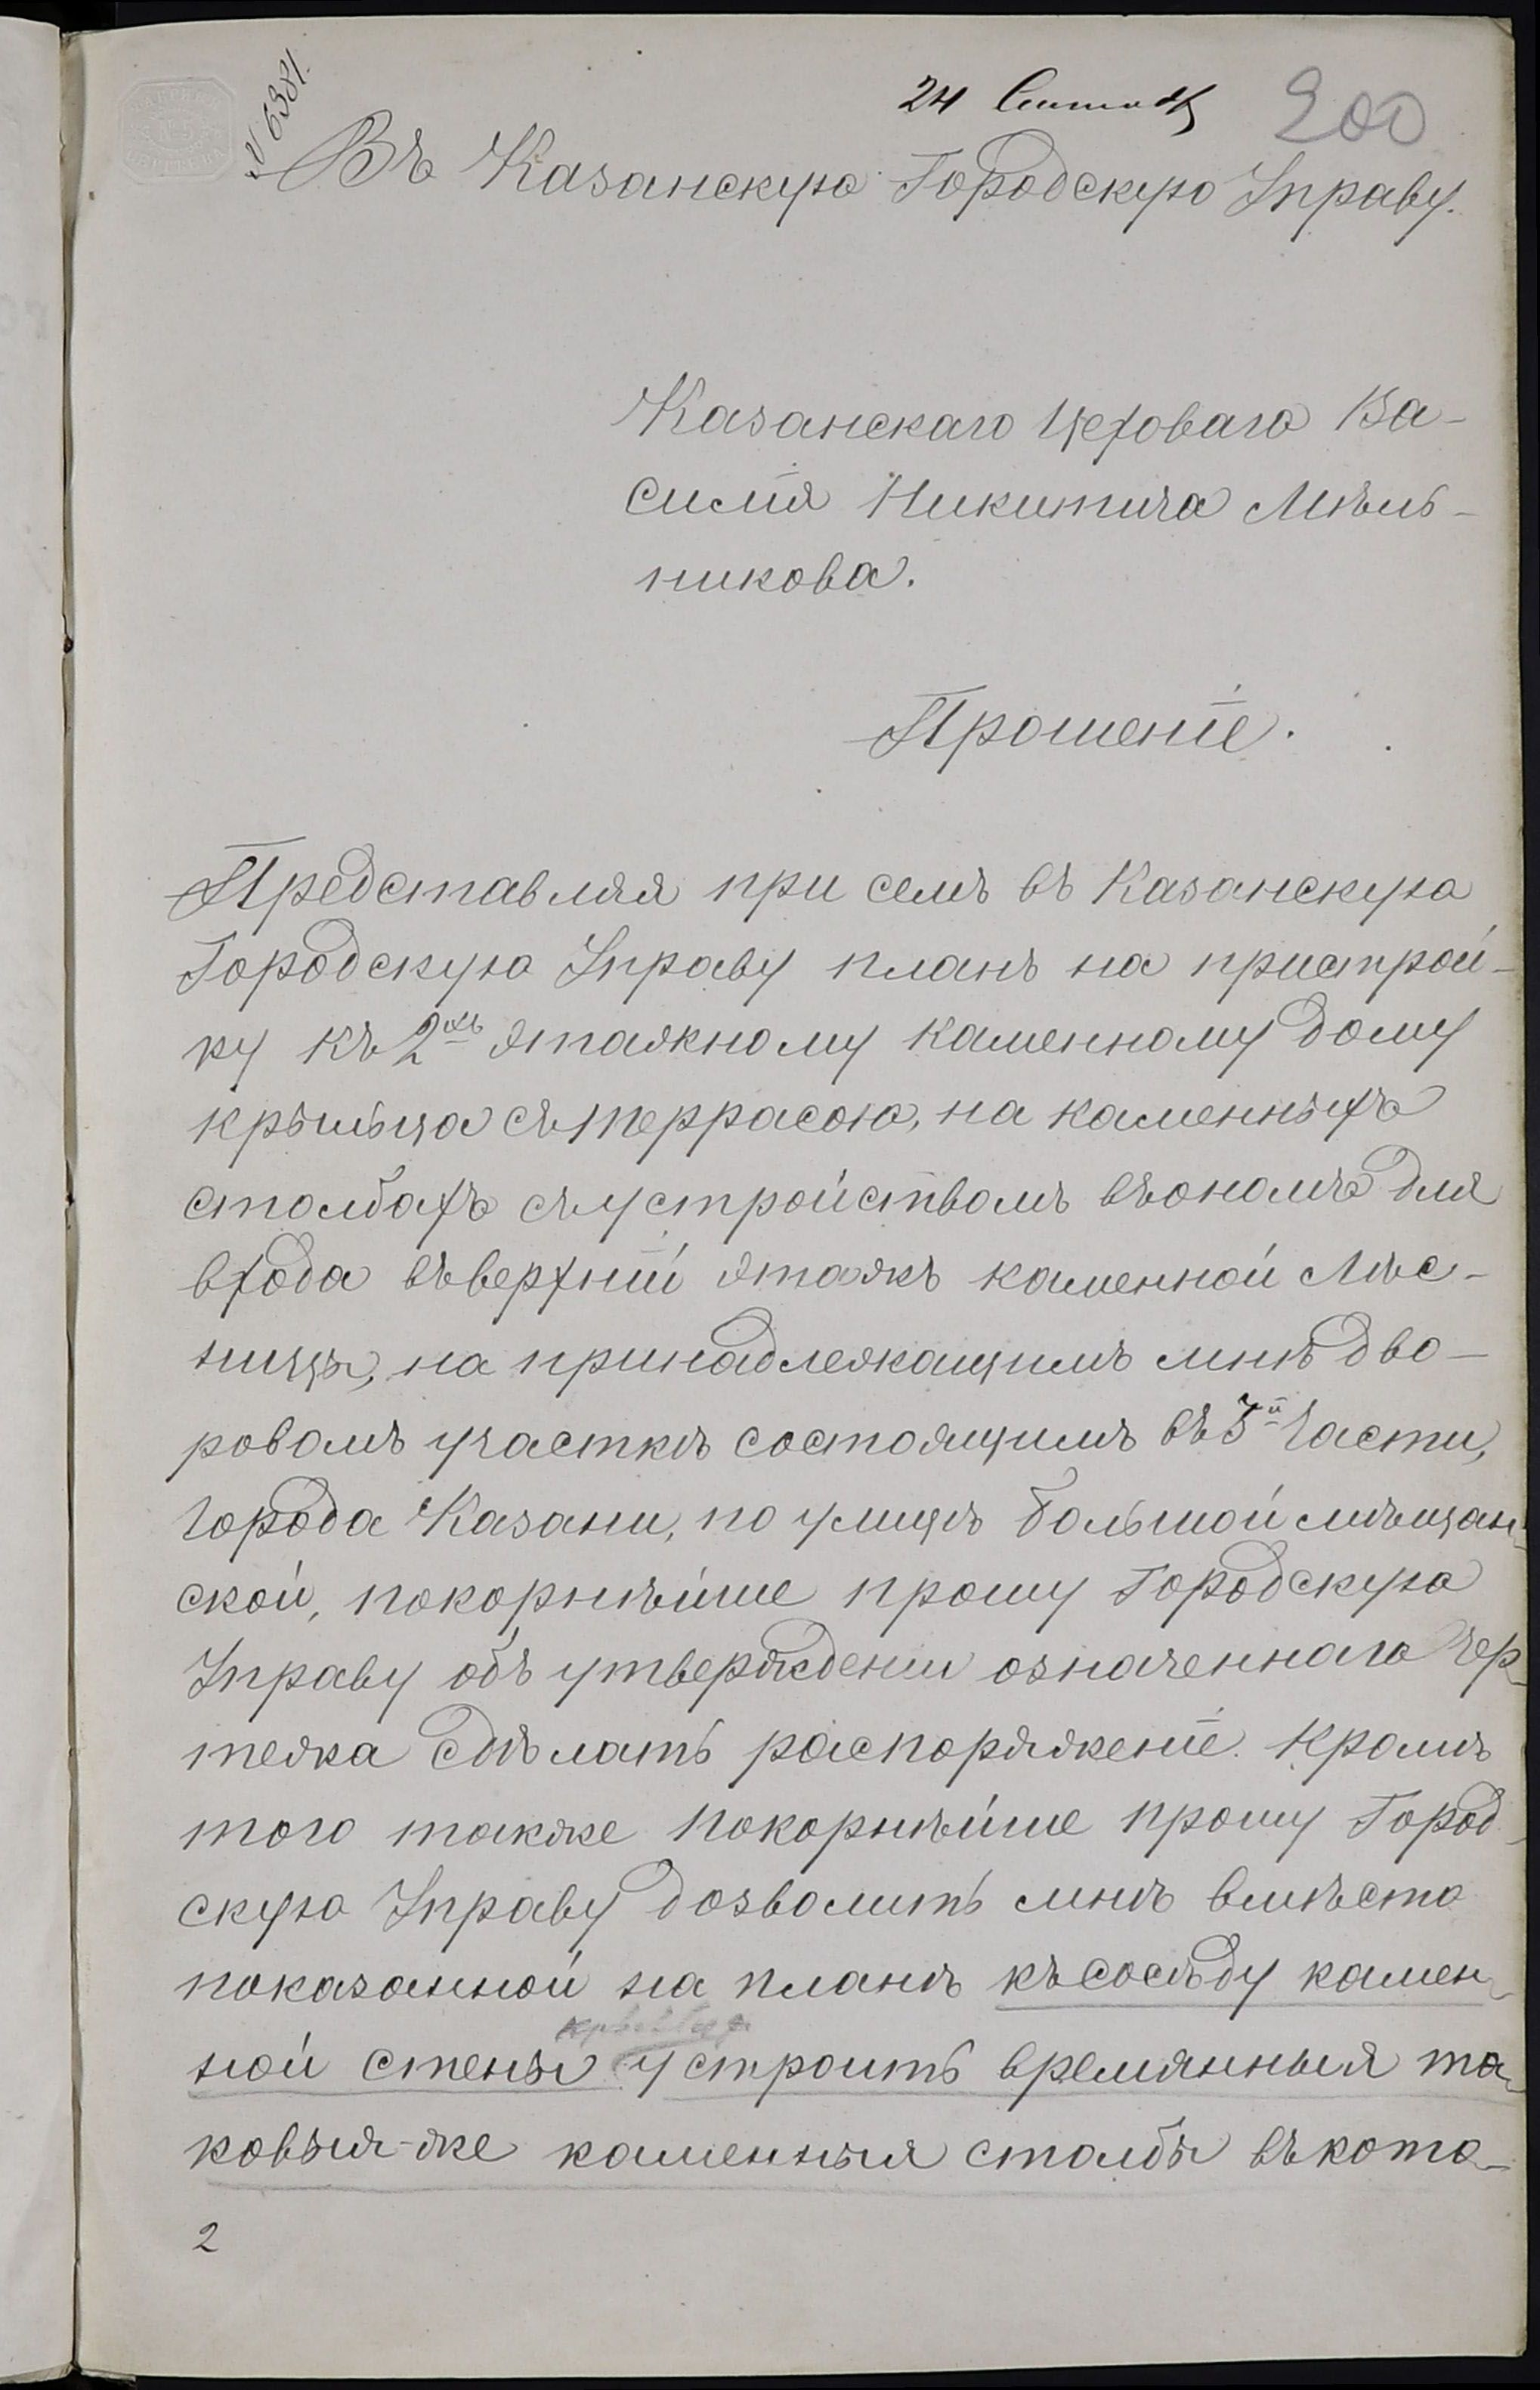 № 6381.
24 Сентяб
200
Въ Казанскую Городскую Управу.
Казанскаго Цеховаго Ва-
силія Никитича Мѣль-
никова.
Прошеніе.
Представляя при семъ въ Казанскую
Городскую Управу планъ на пристрой-
ку къ 2хъ этажному каменному дому
крыльца съ террасою, на каменныхъ
столбахъ съ устройствомъ въ ономъ для
входа въ верхній этажъ каменной лѣс-
ницы, на принадлежащимъ мнѣ дво-
ровомъ участкѣ состоящимъ въ 3й Части,
города Казани, по улицѣ большой мѣщан-
ской, покорнѣйше прошу Городскую
Управу объ утвержденіи означеннаго чер-
тежа сдѣлать распоряженіе. Кромѣ
того также покорнѣйше прошу Город-
скую Управу дозволить мнѣ вмѣсто
показанной на планѣ къ сосѣду камен-
крыльца
ной стены устроить времянныя та-
ковыя-же каменныя столбы въ кото-
2